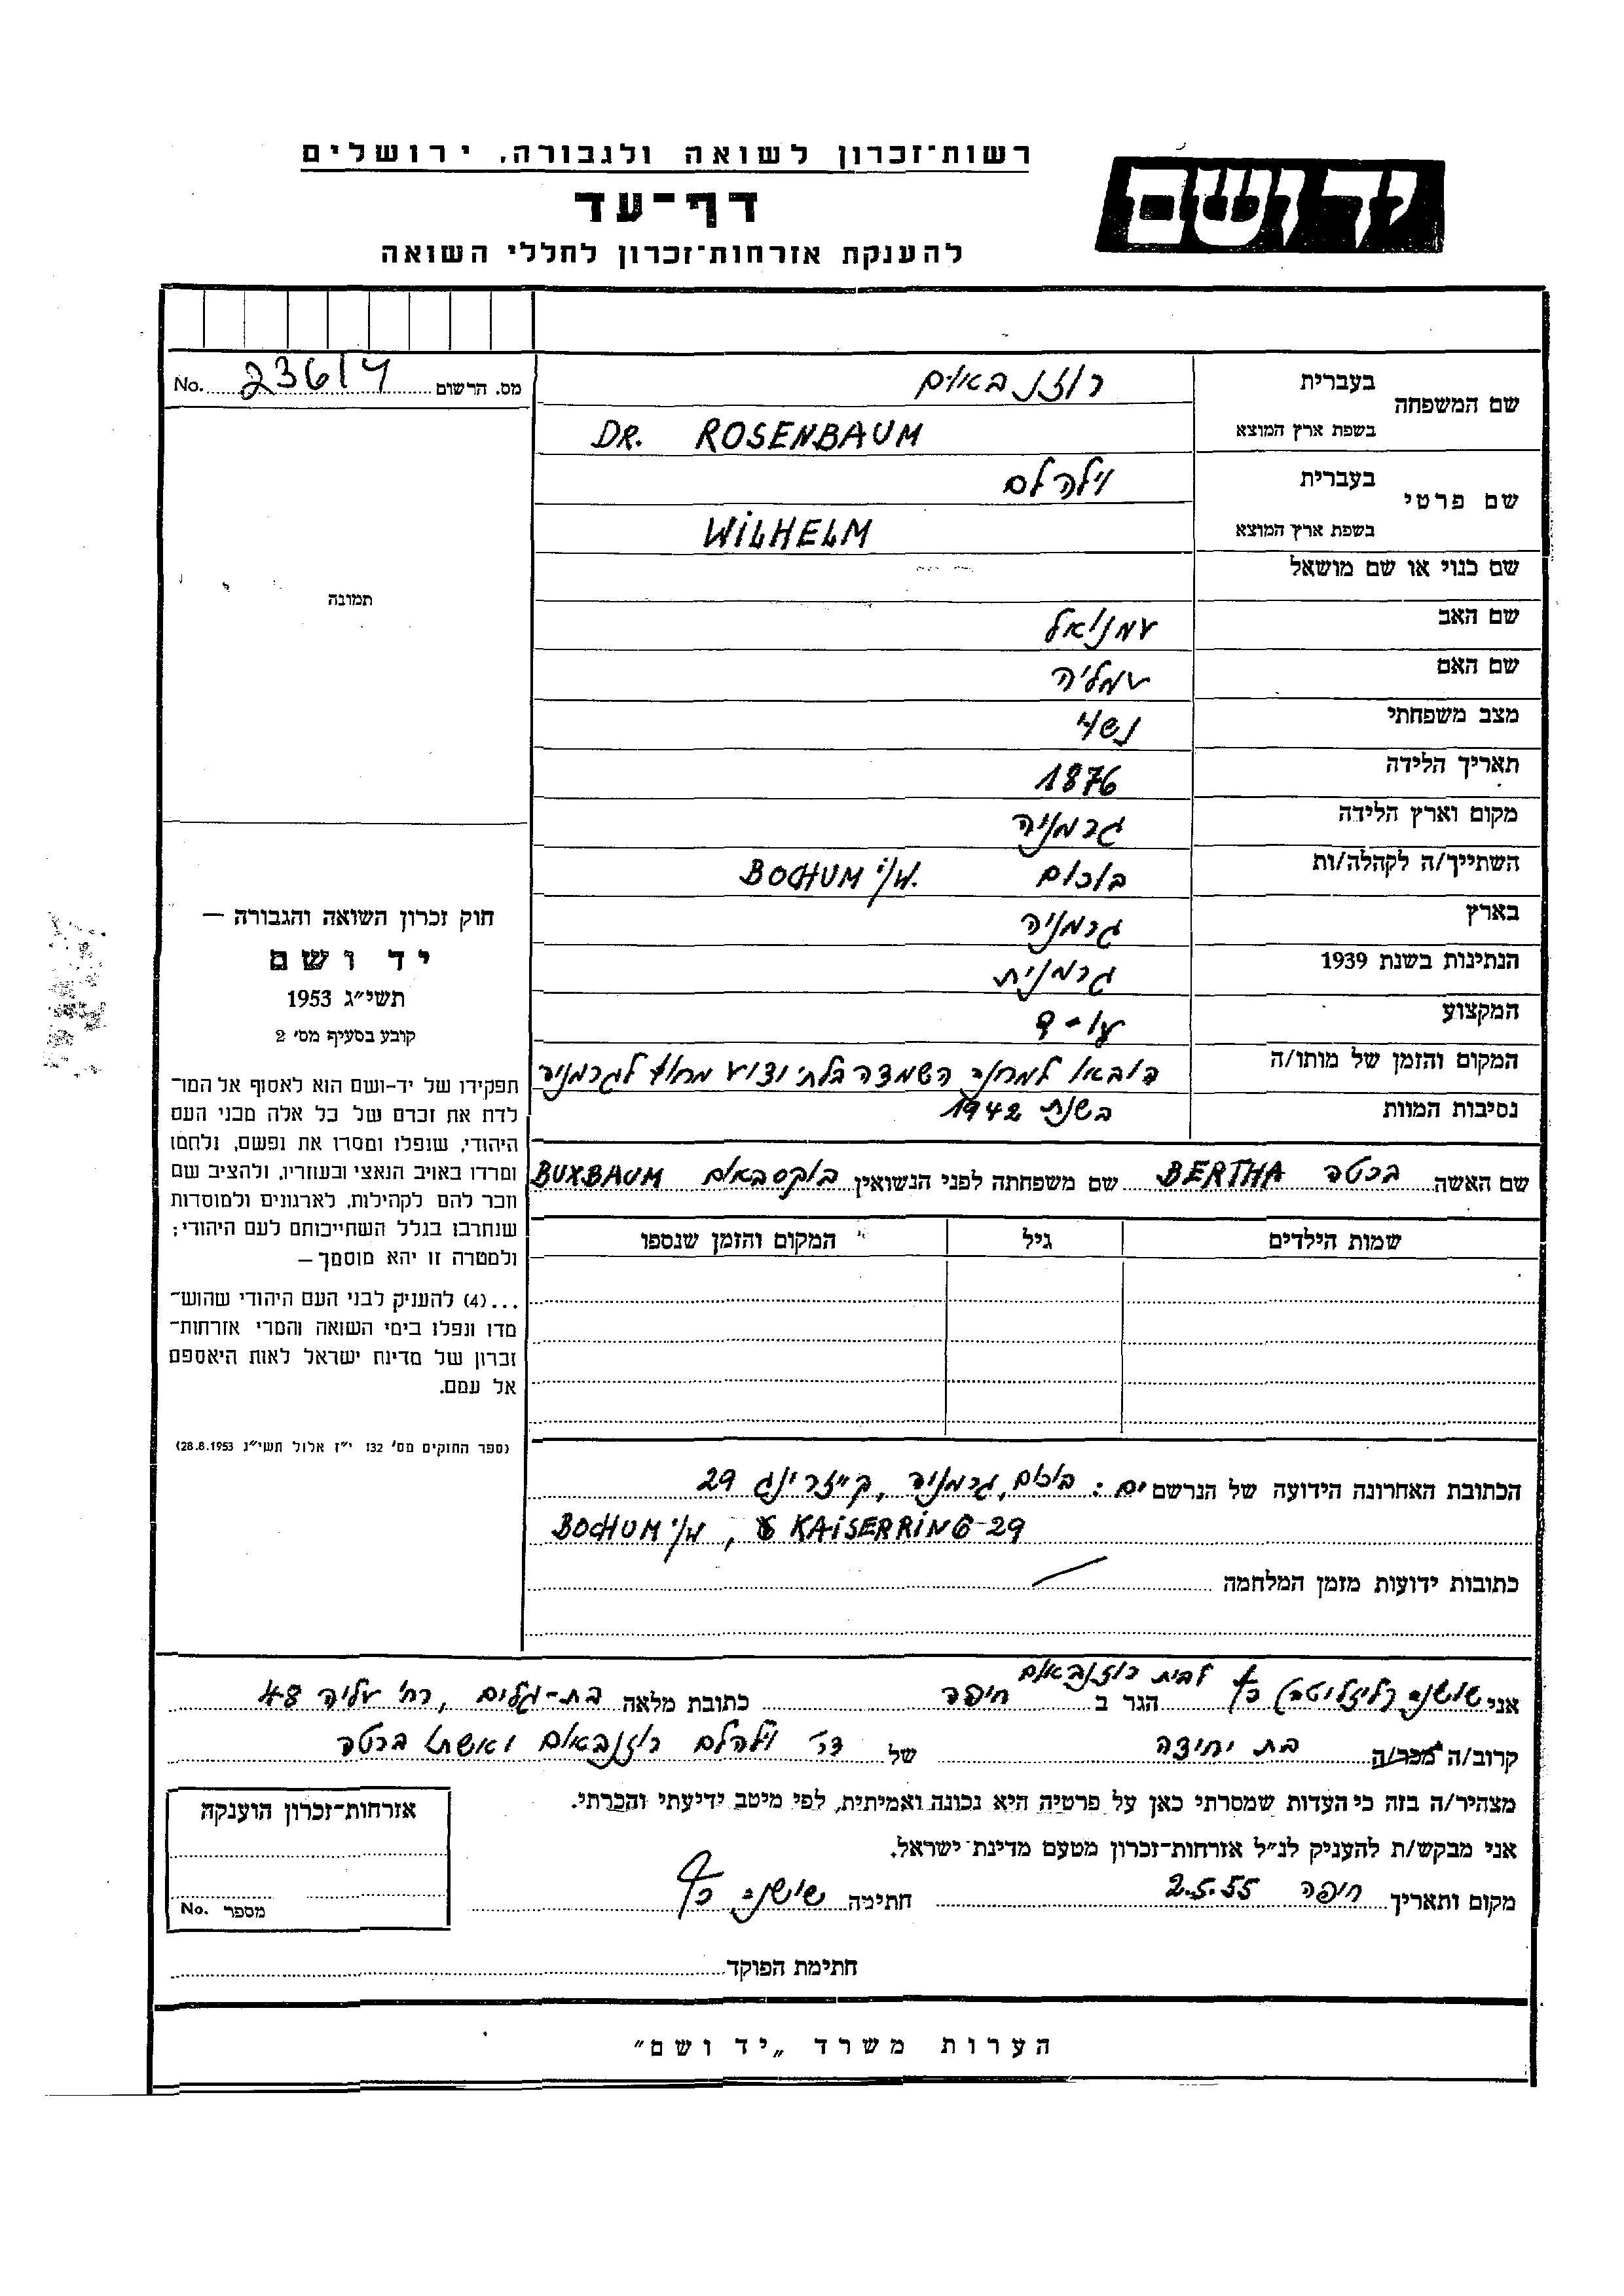 רשות־זכרון לשואה ולגבורה, ירושלים
יד ושם
דף־עד
להענקת אזרחות־זכרון לחללי השואה
מס. הרשום 236/ No.
שם המשפחה
בעברית רוזנבאום
בשפת ארץ המוצא DR. ROSENBAUM
שם פרטי
בעברית וילהלם
בשפת ארץ המוצא WILHELM
שם כנוי או שם מושאל
שם האב עמנואל
שם האם עמליה
מצב משפחתי נשוי
תאריך הלידה 1876
מקום וארץ הלידה גרמניה
השתייך/ה לקהלה/ות בוכום BOCHUM i/W.
בארץ גרמניה
הנתינות בשנת 1939 גרמנית
המקצוע עו-ד
המקום והזמן של מותו/ה הובאו למחנה השמדה בלתי ידוע מחוץ לגרמניה
נסיבות המוות בשנת 1942
שם האשה ברטה BERTHA שם משפחתה לפני הנשואין בוקסבאום BUXBAUM
שמות הילדים גיל המקום והזמן שנספו
הכתובת האחרונה הידועה של הנרשמים: בוכום, גרמניה, קייזרינג 29
BOCHUM i/W, KAISERRING 29
כתובות ידועות מזמן המלחמה
תמונה
חוק זכרון השואה והגבורה —
יד ושם
תשי״ג 1953
קובע בסעיף מס׳ 2
תפקידו של יד-ושם הוא לאסוף אל המו־
לדת את זכרם של כל אלה מבני העם
היהודי, שנפלו ומסרו את נפשם, נלחמו
ומרדו באויב הנאצי ובעוזריו, ולהציב שם
וזכר להם לקהילות, לארגונים ולמוסדות
שנחרבו בגלל השתייכותם לעם היהודי;
ולמטרה זו יהא מוסמך —
...(4) להעניק לבני העם היהודי שהוש־
מדו ונפלו בימי השואה והמרי אזרחות־
זכרון של מדינת ישראל לאות היאספם
אל עמם.
(ספר החוקים מס׳ 132 י״ז אלול תשי״ג 28.8.1953)
לבית רוזנבאום
אני שושנה (ליזלוטה) הגר ב חיפה כתובת מלאה בת-גלים, רח׳ עליה 48
קרוב/ה מכר/ה בת יחידה של דר׳ וילהלם רוזנבאום ואשתו ברטה
מצהיר/ה בזה כי העדות שמסרתי כאן על פרטיה היא נכונה ואמיתית, לפי מיטב ידיעתי והכרתי.
אני מבקש/ת להעניק לנ״ל אזרחות־זכרון מטעם מדינת ישראל.
מקום ותאריך חיפה 2.5.55 חתימה שושנה
אזרחות־זכרון הוענקה
מספר No.
חתימת הפוקד
הערות משרד „יד ושם״